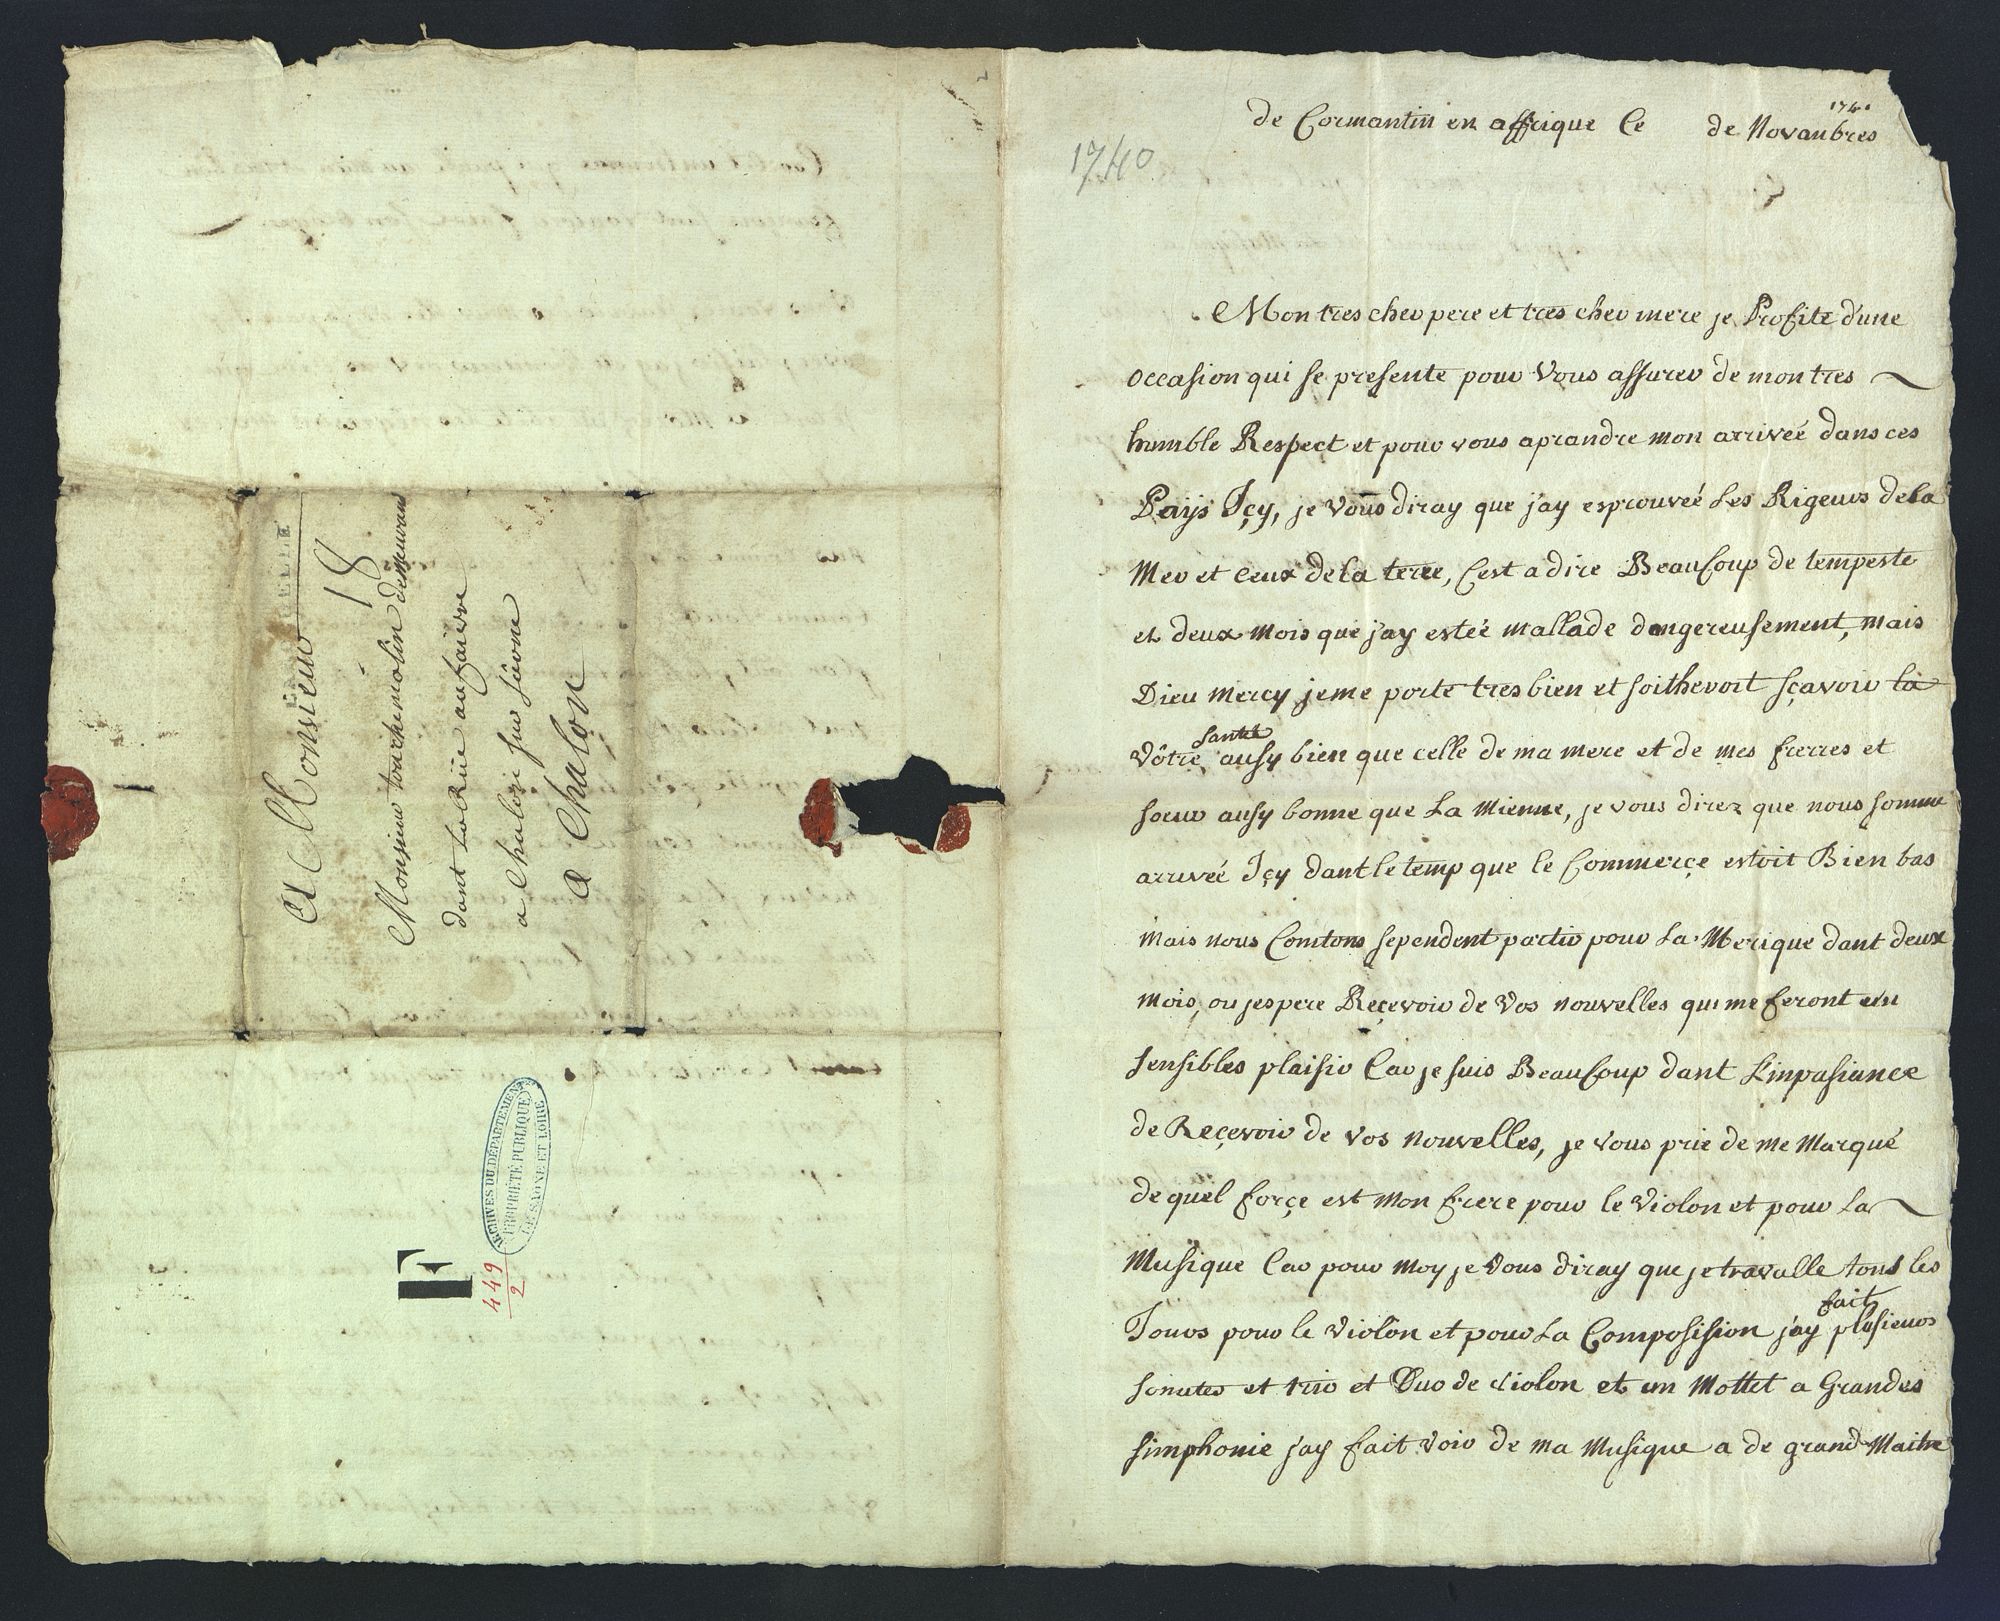 A Monsieur
18
Monsieur touchemolin demeurans
dant La Rüe au faivre
a Chalon sur sâone
a Chalon
ARCHIVES DU DÉPARTEMENT
PROPRIÉTÉ PUBLIQUE
DE SAONE ET LOIRE
F
449
2
1740
de Cormantin en affrique Ce de Novanbres
Mon tres cher pere et tres cher mere je Profite d'une
occasion qui se presente pour Vous assurer de mon tres
humble Respect et pour vous aprandre mon arriveé dans ces
Païjs Içy, je Vous diray que j'ay esprouveé Les Rigeurs de La
Mer et Ceux de La terre, C'est a dire BeauCoup de tempeste
et deux mois que j'ay esteé mallade dangereusement, mais
Dieu mercy je me porte tres bien et soitheroit sçavoir la
Vôtre santé ausy bien que celle de ma mere et de mes frerres et
soeur ausy bonne que La Mienne, je vous direz que nous somme
arriveé Içy dant le temp que le Commerçe estoit Bien bas
mais nous Comtons sependent partir pour La Merique dant deux
mois, ou jespere Reçevoir de Vos nouvelles qui me feront un
sensibles plaisir Car je suis BeauCoup dant L'inpasiance
de Reçevoir de Vos nouvelles, je Vous prie de me Marqué
de quel forçe est mon frere pour le Violon et pour La
Musique Car pour moy je Vous diray que je travalle tous les
Jours pour le Violon et pour La Composision j'ay fait plusieurs
sonates et trio et Duo de Violon et un Mottet a Grandes
simphonie j'ay fait Voir de ma Musique a de grand Maitre